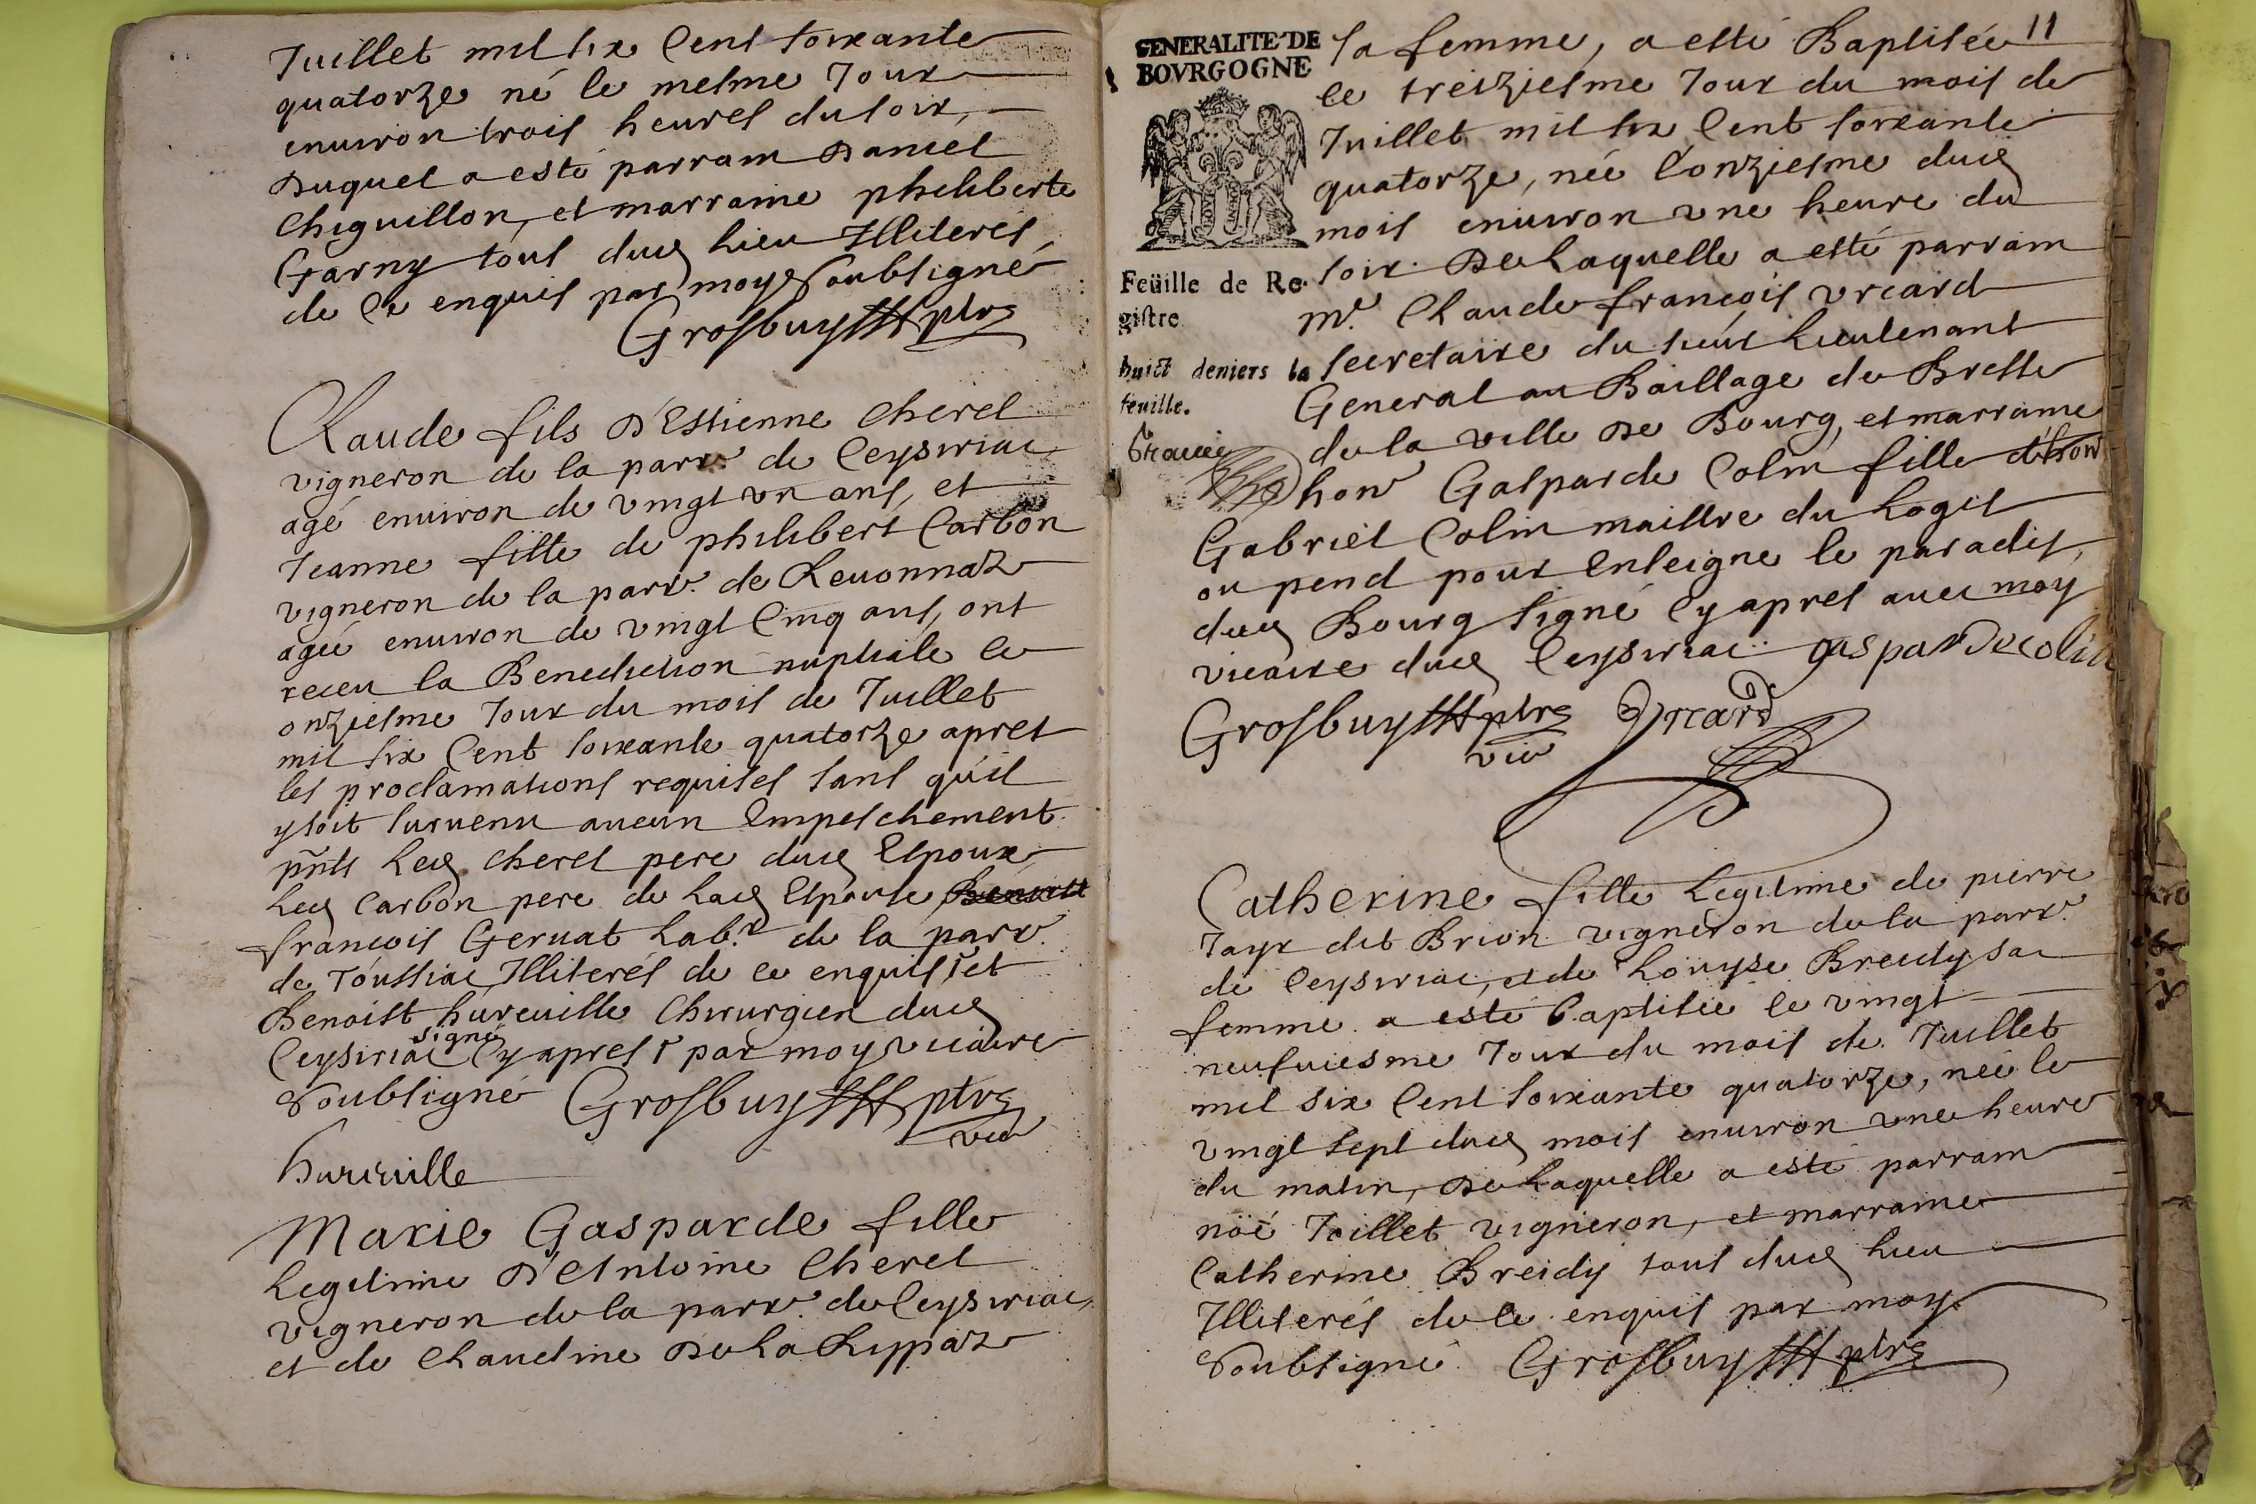 Juillet mil six Cent soixante
quatorze né le mesme Jour
enuiron trois heures du soir,
Duquel a esté parrain Daniel
Chiguillon, et marraine philiberte
Garny tous dud lieu Illiterés,
de Ce enquis par moy soubsigné
Grosbuy ptre
Claude fils D'Estienne Cherel
vigneron de la parr. de Ceysiriac
agé enuiron de vingt un ans, et
Jeanne fille de philibert Carbon
vigneron de la parr. de Reuonnaz
agée enuiron de vingt Cinq ans, ont
receu la Benediction nuptiale le
onziesme Jour du mois de Juillet
mil six Cent soixante quatorze apres
les proclamations requises sans qu'il
y soit suruenu aucun Empeschement
pñts Led Cherel pere dud Espoux
Led Carbon pere de Lad Espouse Benoist
françois Geruat Lab.r de la parr.
de Toussiac Illiterés de ce enquis, et
Benoist hureuille Chirurgien dud
signé
Ceysiriac Cy apres par moy vicaire
Soubsigné Grosbuy ptre
vic
hureuille
Marie Gasparde fille
Legitime D'Antoine Cherel
vigneron de la parr. de Ceysiriac,
et de Claudine De La Lippaz
11
GENERALITE DE
BOVRGOGNE
Feüille de Re-
gistre
huict deniers la
feuille.
sa femme, a esté Baptisée
le treiziesme Jour du mois de
Juillet mil six Cent soixante
quatorze, née l'onziesme dud
mois enuiron vne heure du
soir. De Laquelle a esté parrain
m.e Claude françois vrcard
secretaire du sieur Lieutenant
General au Baillage de Bresse
de la ville De Bourg, et marraine
hon Gasparde Colin fille d'hon
Gabriel Colin maistre du Logis
ou pend pour Enseigne le paradis,
dud Bourg signé Cy apres auec moy
vicaire dud Ceysiriac gasparde colin
Grosbuy ptre Vrcard
vic
Catherine fille Legitime de pierre
Jayr dit Brion vigneron de la parr.
de Ceysiriac, et de Louyse Breidy sa
femme a esté baptisée le vingt
neufuiesme Jour du mois de Juillet
mil six Cent soixante quatorze, née le
vingt sept dud mois enuiron vne heure
du matin, De Laquelle a esté parrain
noé Joillet vigneron, et marraine
Catherine Breidy tous dud lieu
Illiterés de ce enquis par moy
Soubsigné Grosbuy ptre